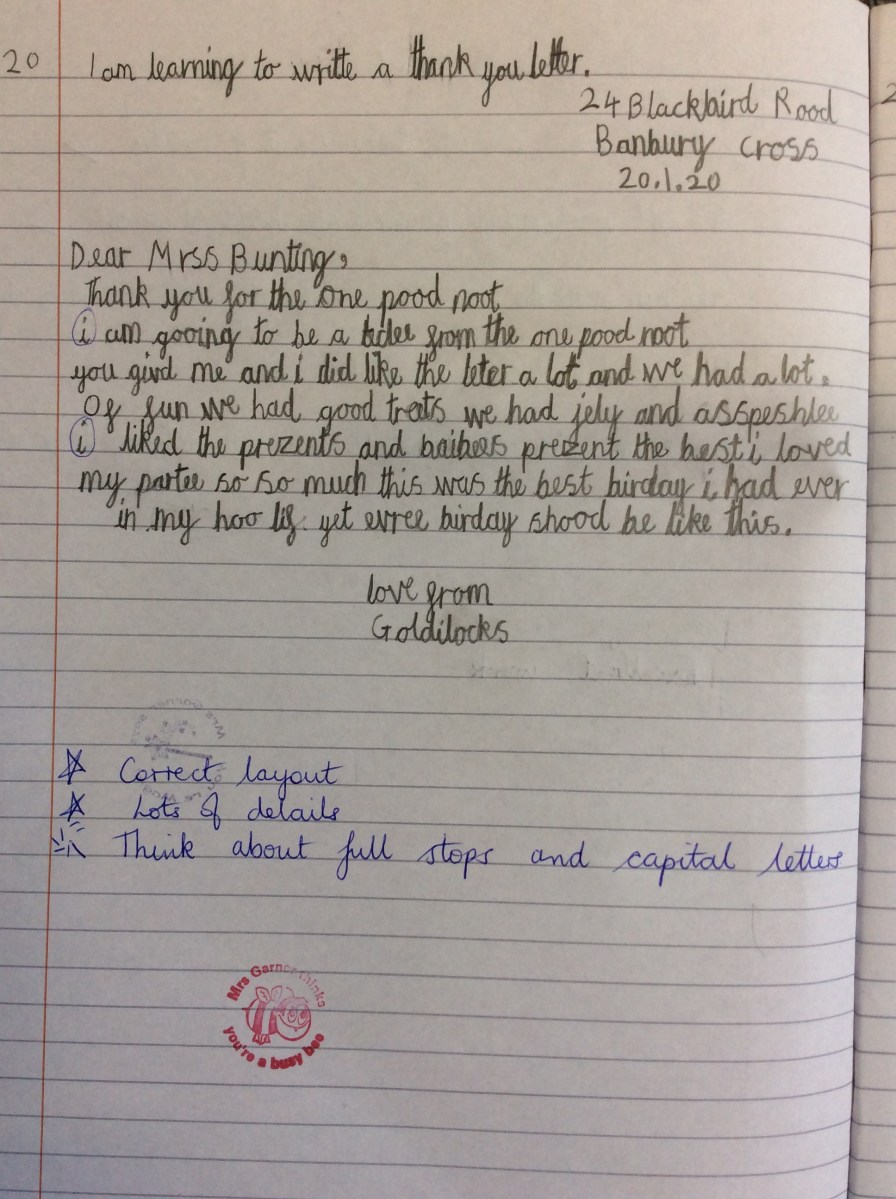 20 I am learning to writte a thank you letter.
24 Blackbird Rood
Banbury Cross
20.1.20
Dear Mrss Bunting,
Thank you for the one pood noot
i am gooing to be a from the one pood noot
you givd me and i did like the leter a lot and we had a lot.
Of fun we had good treats we had jely and asspeshlee
i liked the prezents and prezent the best i loved
my partee so so much this was the best birday i had ever
in my hoo lif yet evree birday shood be like this.
love from
Goldilocks
Correct layout
Lots of details
Think about full stops and capital letters
Mrs Garner thinks
you're a busy bee